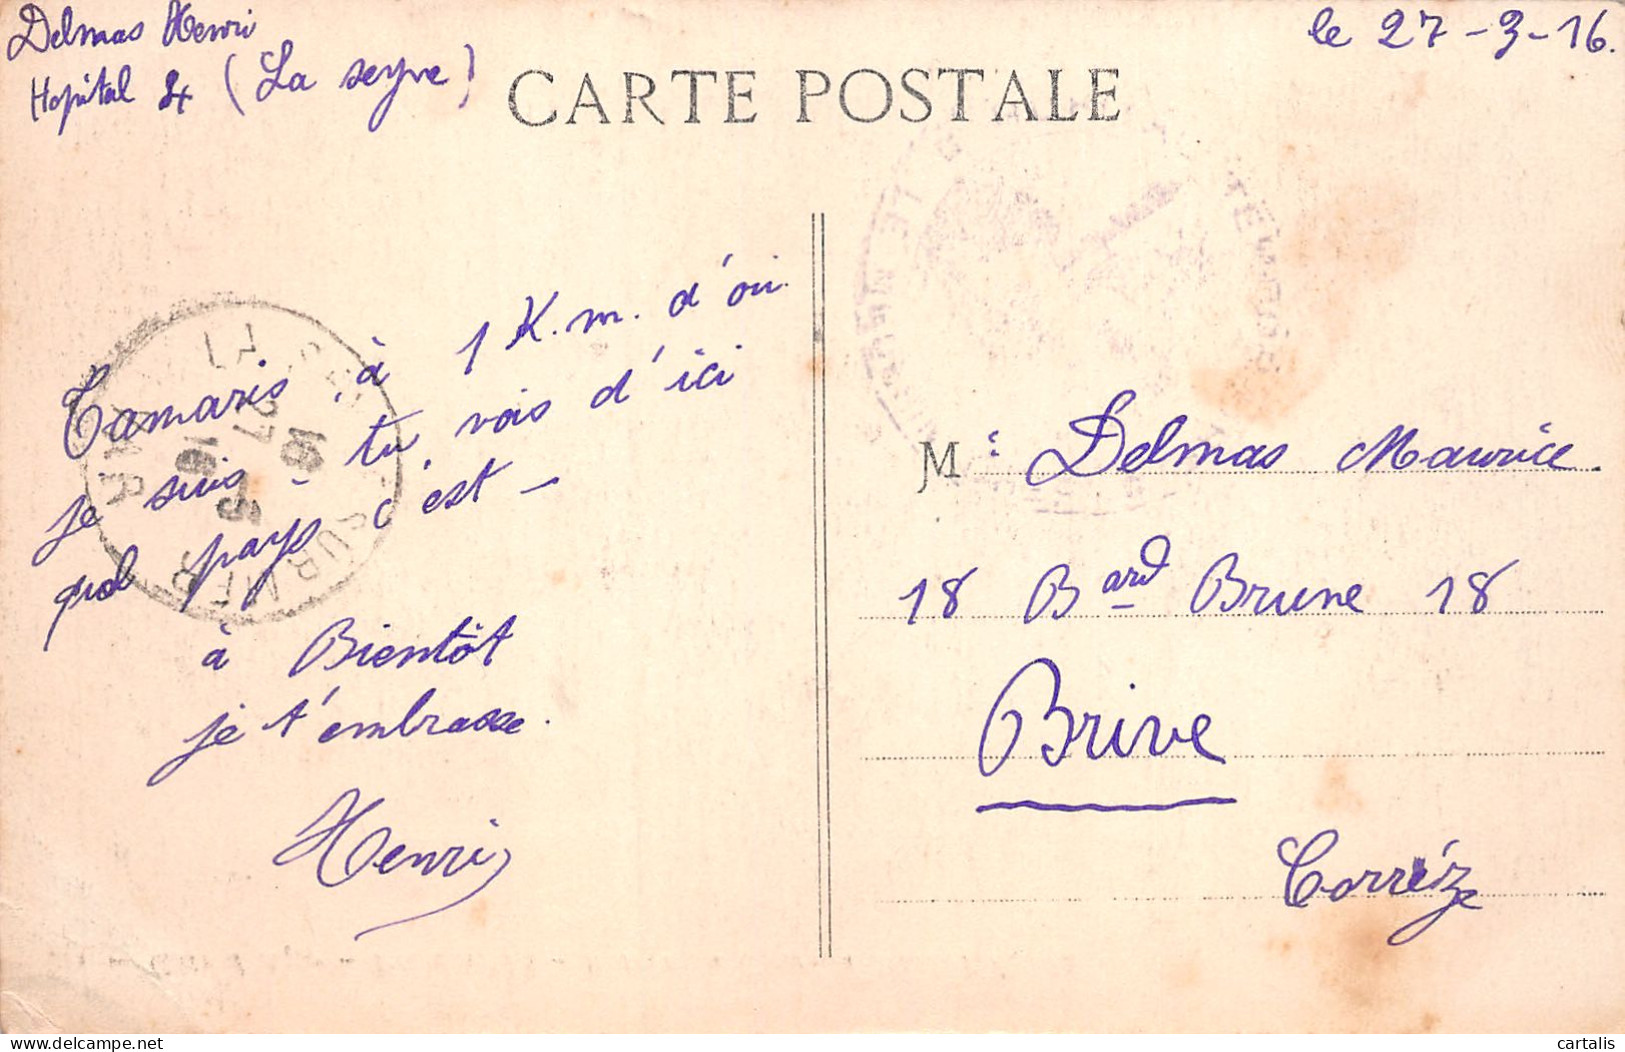 Delmas Henri
Hopital 84 (La seyne)
le 27-3-16.
CARTE POSTALE
Tamaris, à 1 K.m. d'où
je suis - tu vois d'ici
quel pays c'est -
à Bientôt
je t'embrasse.
Henri
M. Delmas Maurice.
18 Bard Brune 18
Brive
Corrèze
LA SEYNE-SUR-MER
VAR
27 - 3
16
delcampe.net
cartalis